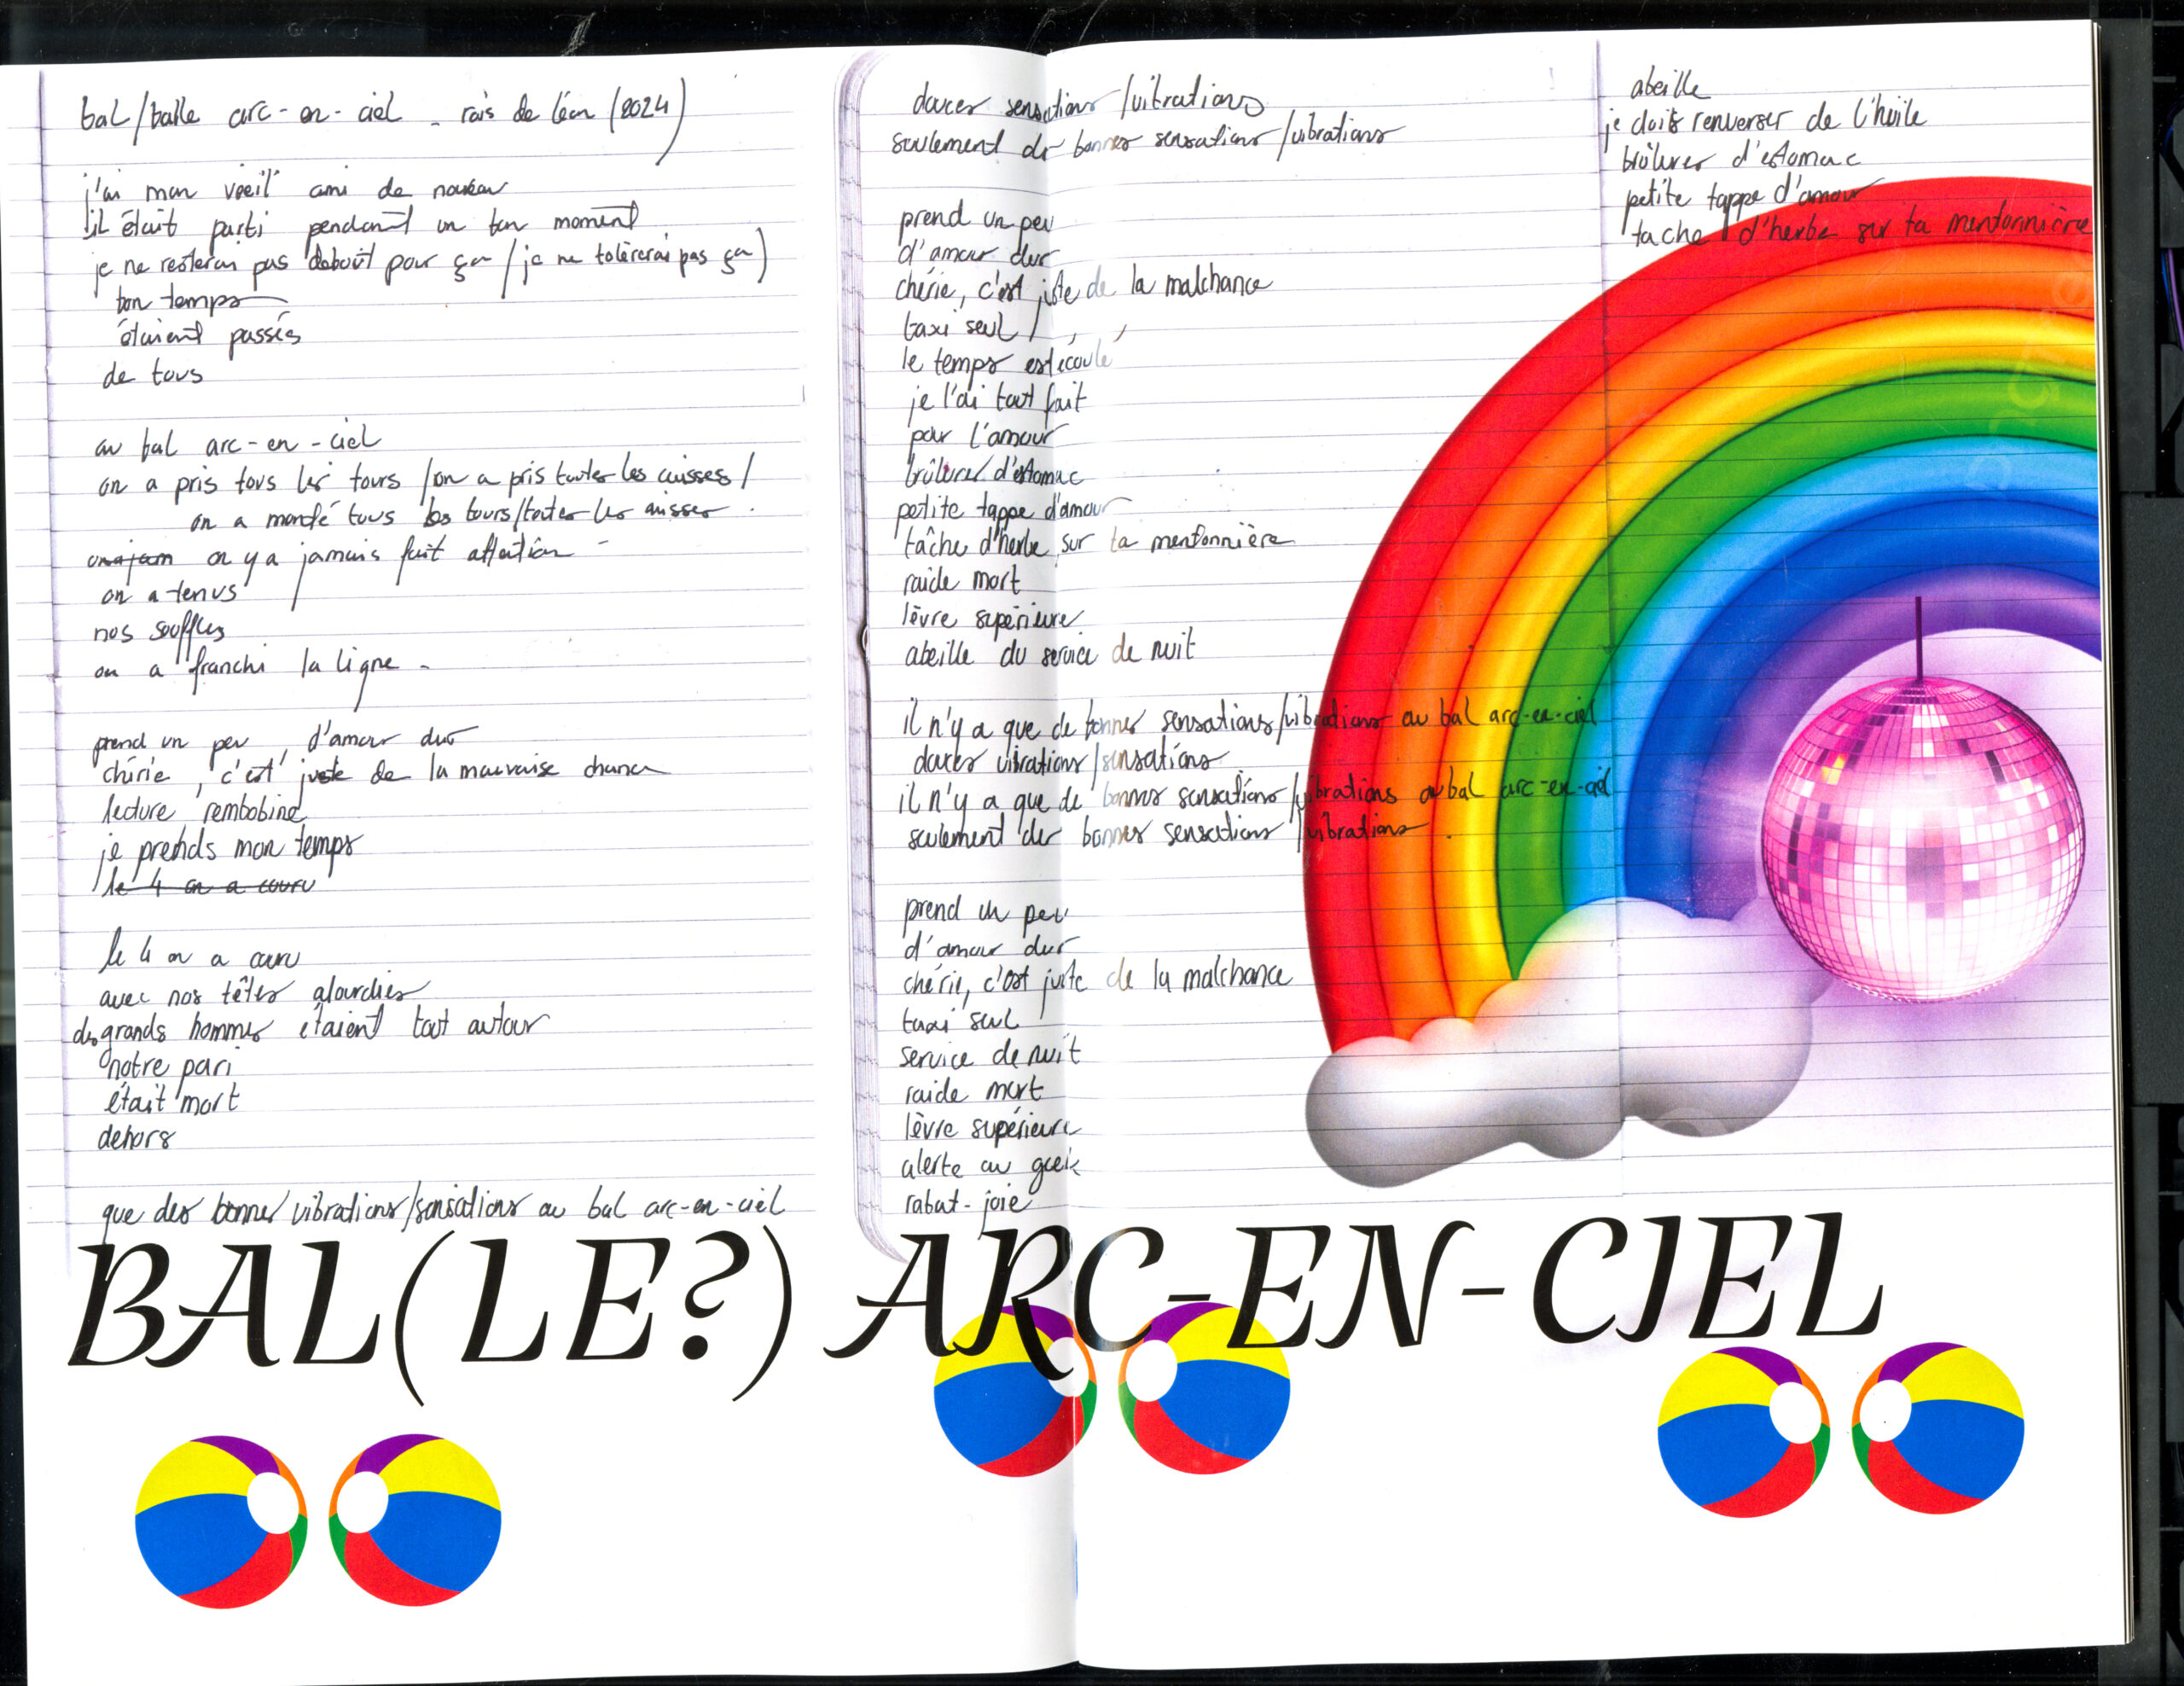 bal/balle arc-en-ciel - rois de léon (2024)
j'ai mon vieil ami de nouveau
il était parti pendant un bon moment
je ne resterai pas debout pour ça / je ne tolèrerai pas ça)
bon temps
étaient passés
de tous
au bal arc-en-ciel
on a pris tous les tours /on a pris toutes les cuisses /
on a monté tous les tours/toutes les cuisses.
on a jam on y a jamais fait attention -
on a tenus
nos souffles
on a franchi la ligne -
prend un peu d'amour dur
chérie, c'est juste de la mauvaise chance
lecture rembobine
je prends mon temps
le 4 on a couru
le 4 on a couru
avec nos têtes alourdies
des grands hommes étaient tout autour
notre pari
était mort
dehors
que des bonnes vibrations/sensations au bal arc-en-ciel
douces sensations /vibrations
seulement de bonnes sensations /vibrations
prend un peu
d'amour dur
chérie, c'est juste de la malchance
taxi seul
le temps est écoulé
je l'ai tout fait
pour l'amour
brûlures d'estomac
petite tappe d'amour
tâche d'herbe sur ta mentonnière
raide mort
lèvre supérieure
abeille du service de nuit
il n'y a que de bonnes sensations/vibrations au bal arc-en-ciel
douces vibrations/sensations
il n'y a que de bonnes sensations/vibrations au bal arc-en-ciel
seulement des bonnes sensations /vibrations.
prend un peu
d'amour dur
chérie, c'est juste de la malchance
taxi seul
service de nuit
raide mort
lèvre supérieure
alerte au geek
rabat-joie
abeille
je dois renverser de l'huile
brûlures d'estomac
petite tappe d'amour
tache d'herbe sur ta mentonnière
BAL(LE?) ARC-EN-CIEL